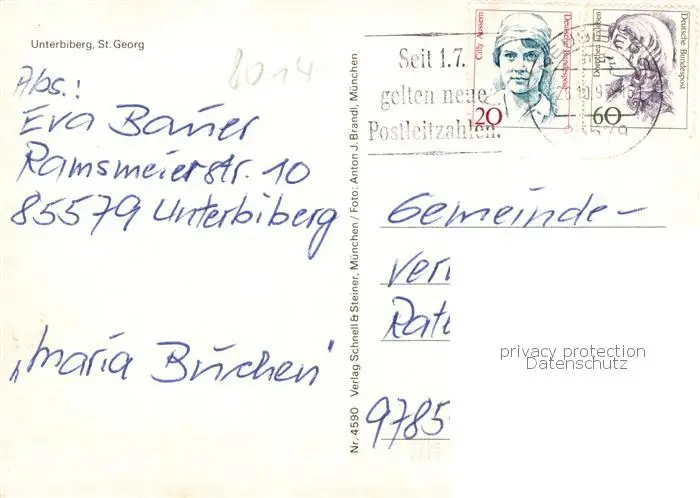 Unterbiberg, St. Georg
8014
Abs.:
Eva Bauer
Ramsmeierstr. 10
85579 Unterbiberg
„Maria Buchen"
Nr. 4590 Verlag Schnell & Steiner, München / Foto: Anton J. Brandl, München
Seit 1.7.
gelten neue
Postleitzahlen.
Cilly Aussem
Deutsche Bundespost
20
Dorothea Erxleben
Deutsche Bundespost
60
Gemeinde-
Ver
Rat
9785
privacy protection
Datenschutz